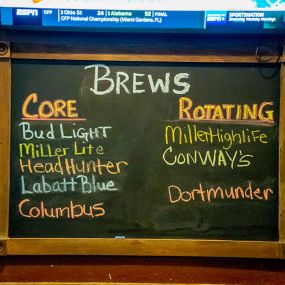 ESPN CFP 3 Ohio St 24 1 Alabama 52 FINAL
CFP National Championship (Miami Gardens, FL)
ESPN
BREWS
CORE
Bud LIGHT
Miller Lite
HeadHunter
Labatt Blue
Columbus
ROTATING
MillerHighlife
CONWAYS
Dortmunder